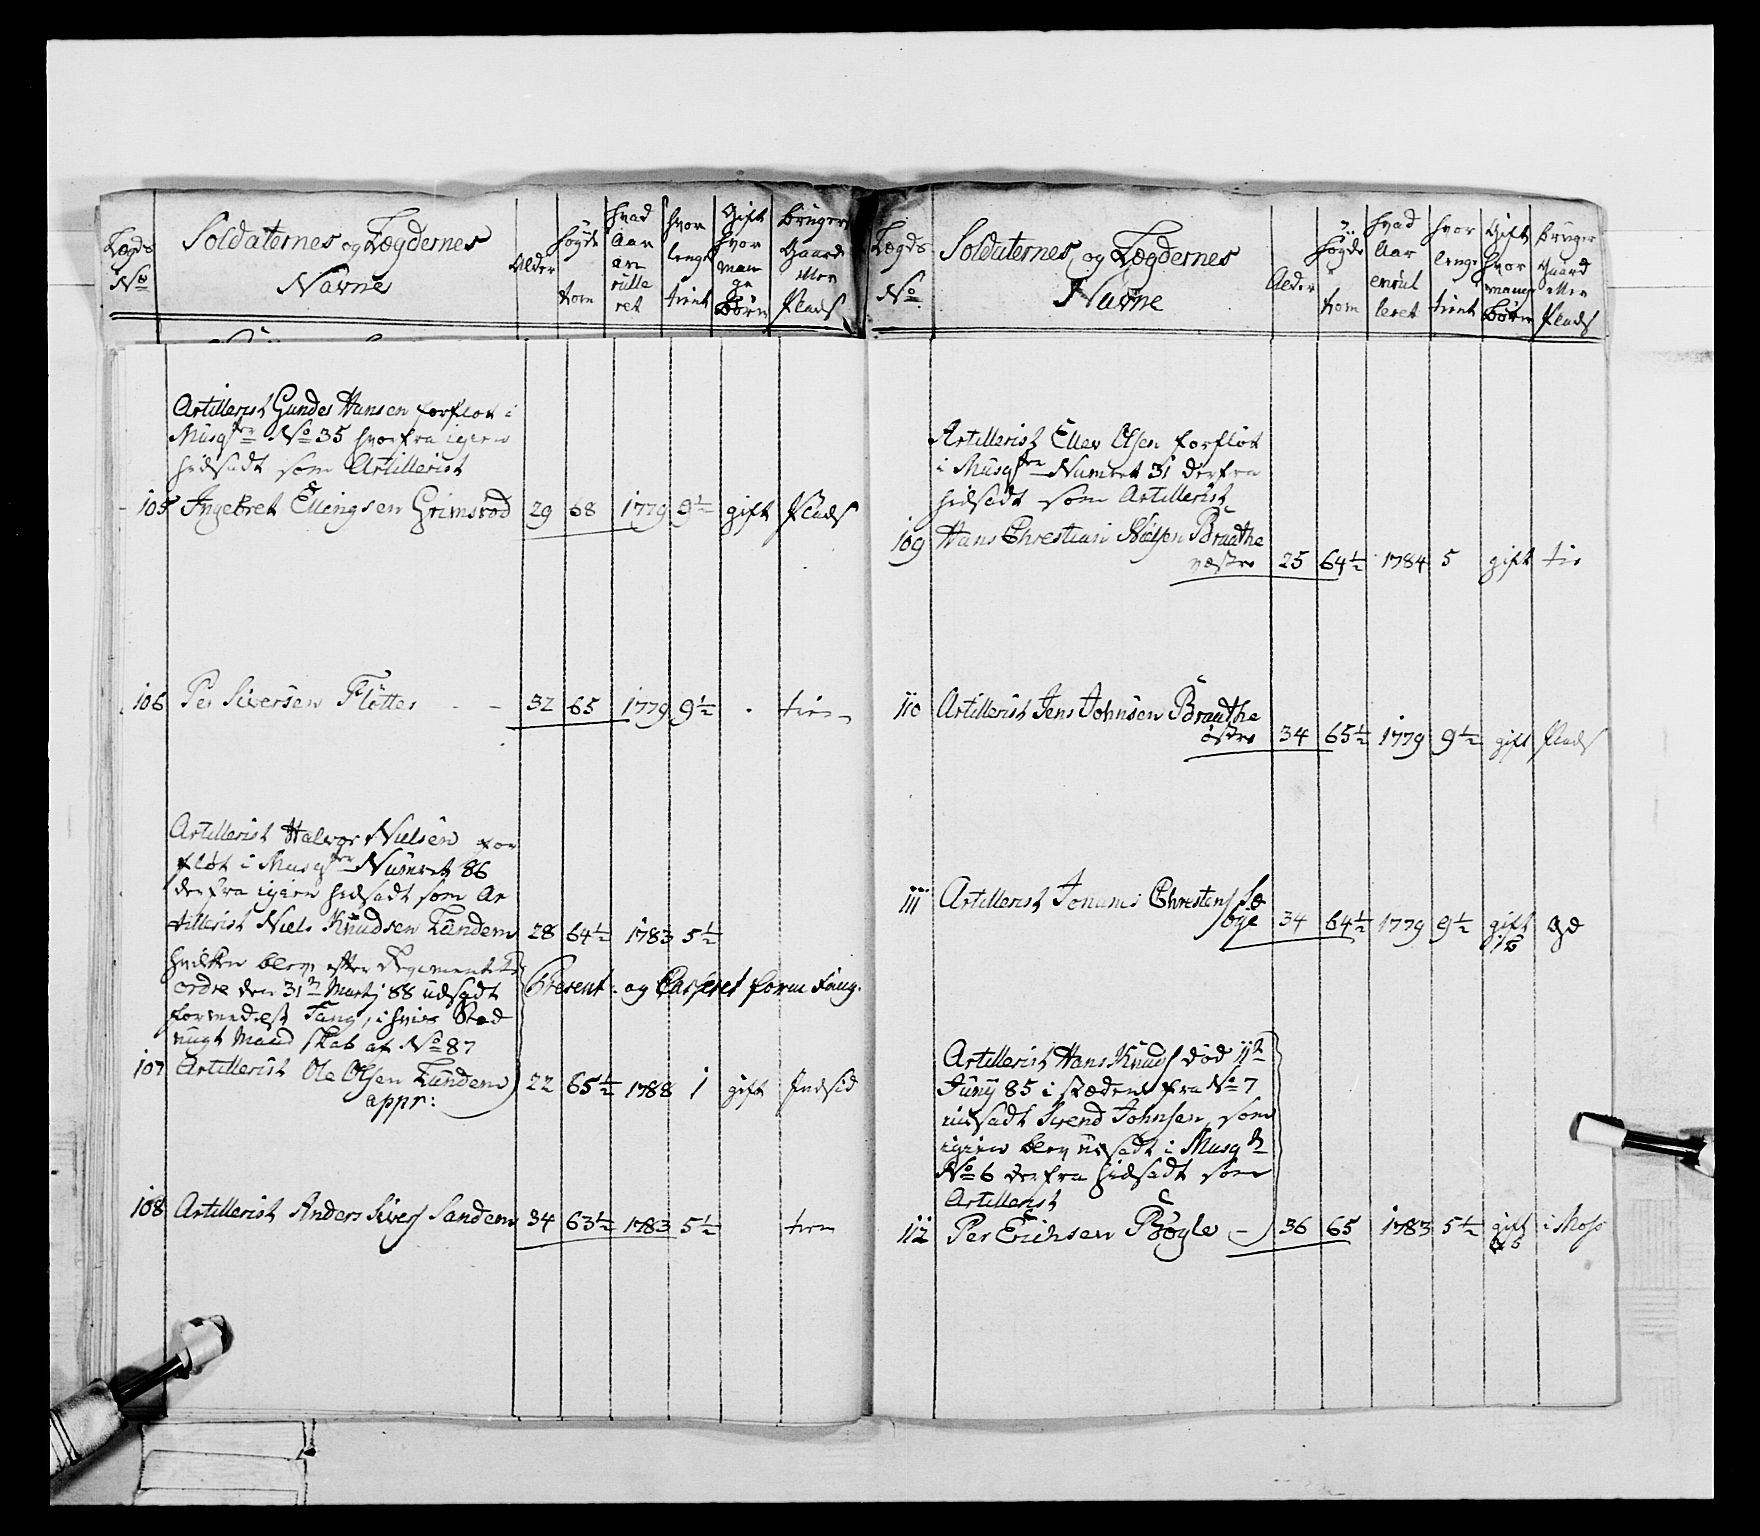 Lægds No
Soldaternes og Lægdernes Navne
Alder
høyde tom
hvad Aar en rulle ret
hvor lenge tient
Gift hvor man ge Børn
bruger Gaard eller Plads
Artillerist Gunder Hansen forfløt i
Musqtr No 35 hvorfra igien
hidsadt som Artillerist
105 Ingebret Ellingsen Grimsrød 29 68 1779 9½ gift Plads
106 Per Siversen Fløtter - - 32 65 1779 9½ - tien
Artillerist Halvor Nielsen for
fløt i Musqtr Numret 86
derfra igien hidsadt som Ar
tillerist Niels Knudsen Lundem 28 64½ 1783 5½
hvilken blev efter Regimentets
ordre den 31te Martj 88 udsadt
formedelst Fang, i hvis Sted
rügt Mand skab af No 87
Present og Casseret form Fang.
107 Artillerist Ole Olsen Lundem 22 65½ 1788 1 gift Indsid
appr:
108 Artillerist Anders Sivers Sandem 34 63½ 1783 5½ tien
Lægds No
Soldaternes og Lægdernes Navne
Alder
høyde tom
hvad Aar enrul leret
hvor lenge tient
Gift hvor mange Børn
bruger Gaard eller Plads
Artillerist Ellev Olsen forfløt
i Musqtr Numret 31 derfra
hidsadt som Artillerist
109 Hans Christian Nielsen Braathe
væstre 25 64½ 1784 5 gift tie
110 Artillerist Jens Johnsen Braathe
østre 34 65½ 1779 9½ gift Plads
111 Artillerist Johannes Christens Sæ
bye 34 64½ 1779 9½ gift 1/B gd
Artillerist Hans Knuds død 11te
Junÿ 85 i stæden fra No 7
indsadt Svend Johnsen, som
igien blev udsadt i Musqtr
No 6 derfra hidsadt som
Artillerist
112 Per Erichsen Bøgle - 36 65 1783 5½ gift i Moss